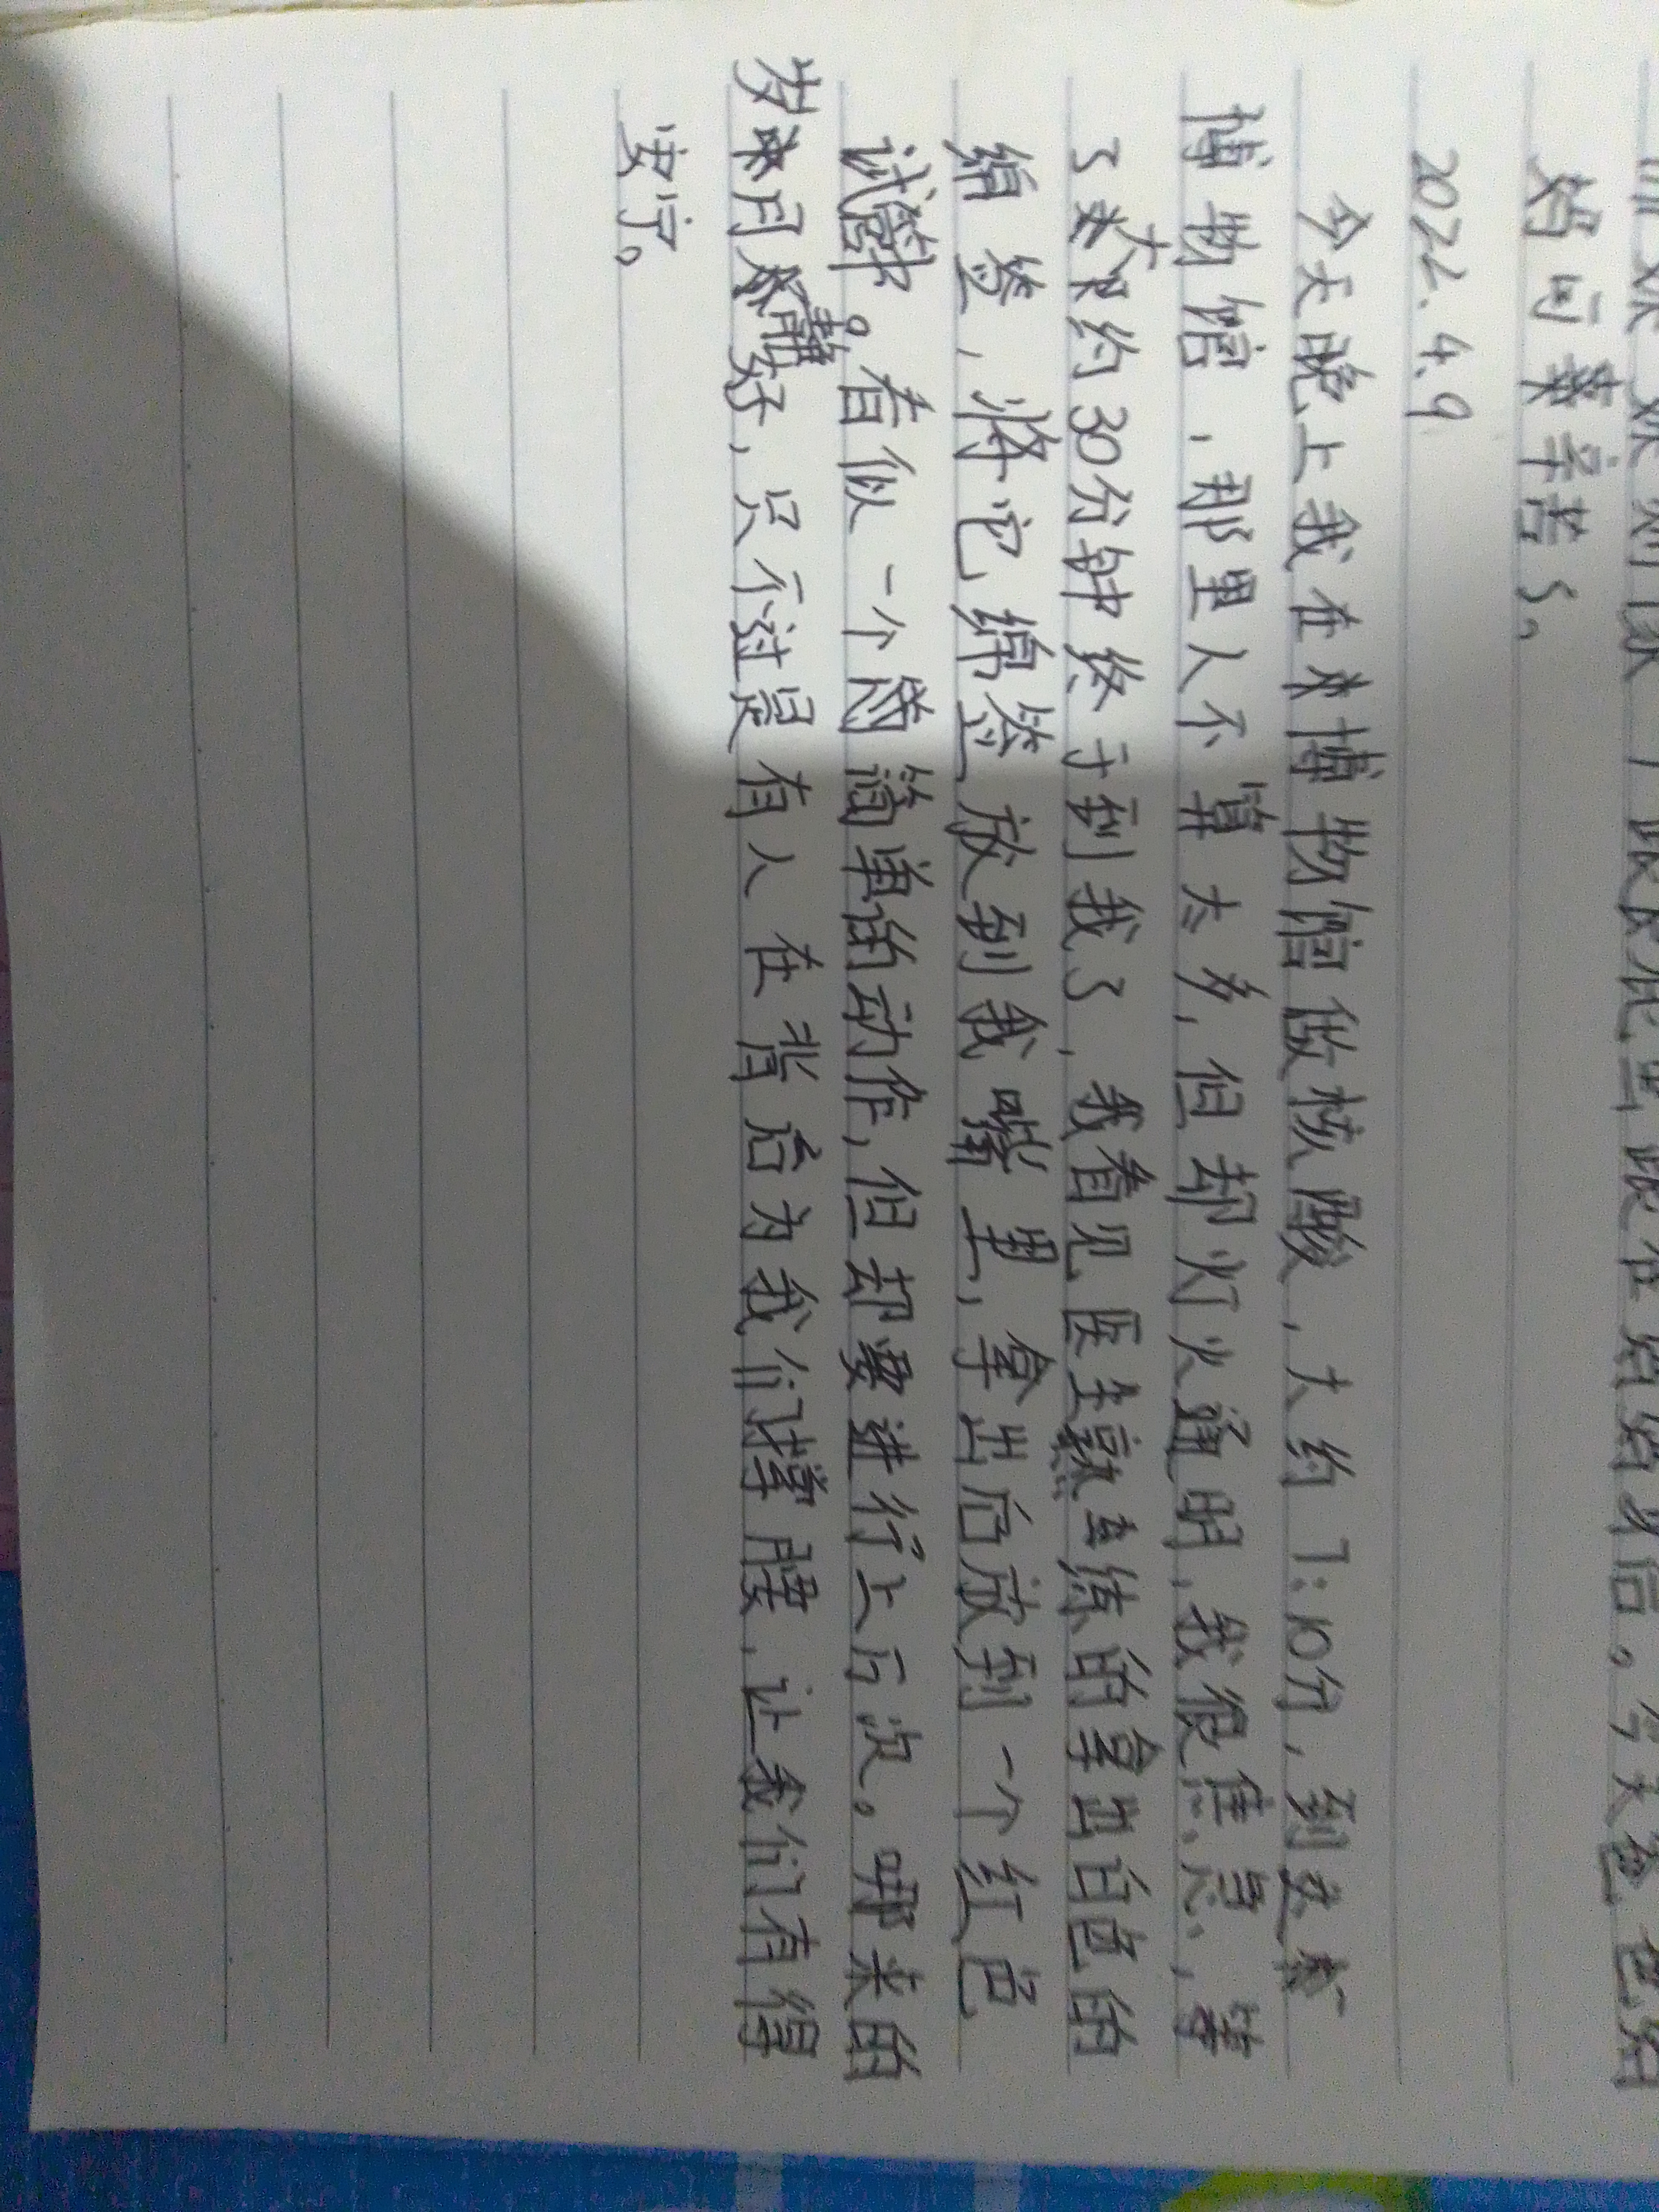 妈可葉辛苦了。
2022.4.9
今天晚上我在木博物馆做核酸，大约7:10分，到达木
博物馆，那里人不算太多，但却灯火通明，我很焦急，等
了大约30分钟终于到我了，我看见医生熟练的拿出白色的
绵签，将它绵签放到我嘴里，拿出后放到一个红色
试管中。看似一个简单的动作，但却要进行上万次。哪来的
岁月静好，只不过是有人在背后为我们撑腰，让我们有得
安宁。